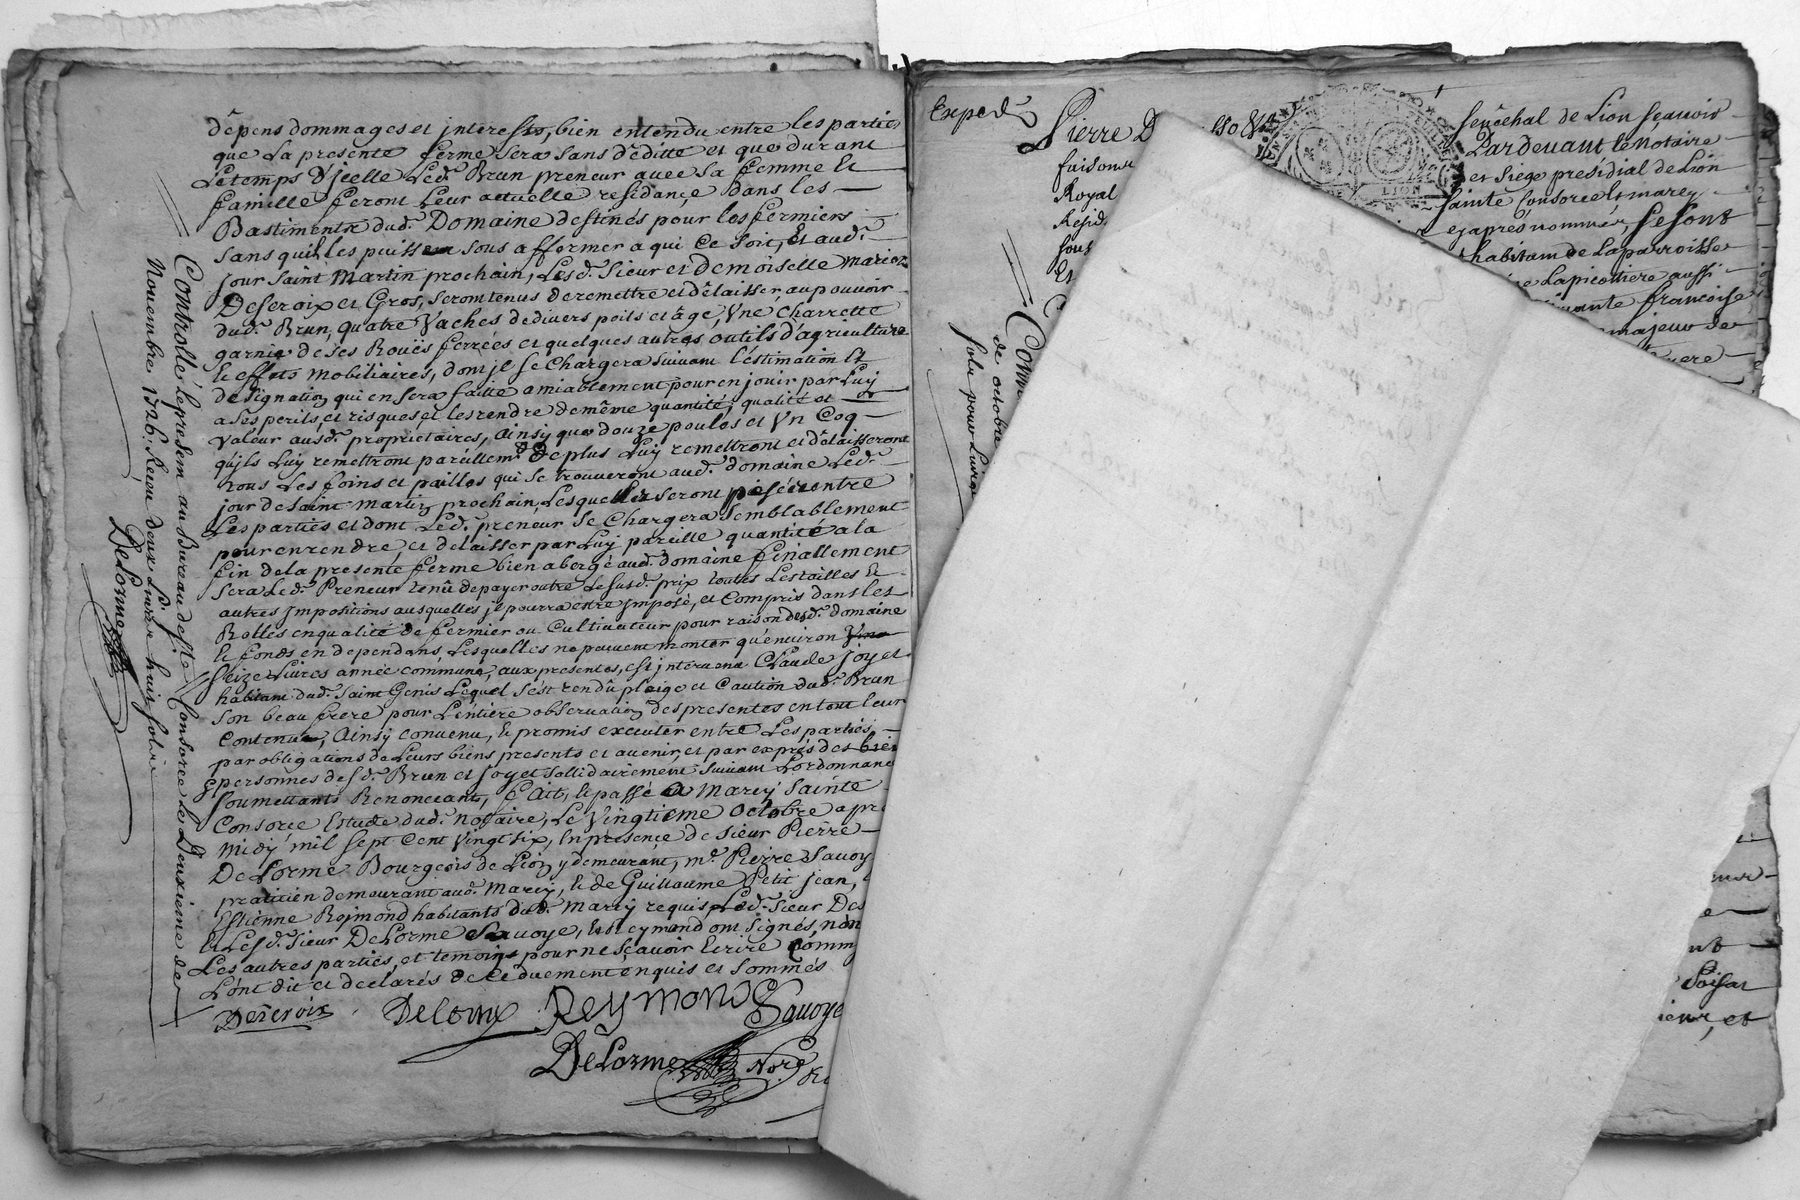 dêpens dommages et jnterests, bien entendu entre les parties
que La presente ferme sera sans d'editte et que durant
Le temps d'jcelle Led. Brun preneur avec sa femme et
famille feront Leur actuelle residance dans les
Bastiments dud. Domaine destinés pour les fermiers
sans quil les puisse sous affermer a qui ce soit, Et aud.
jour saint Martin prochain, Lesd. sieur et demoiselle
Descroix et Gros, seront tenus de remettre et délaisser, au pouvoir
dud. Brun, quatre Vaches de divers poils et âge, Vne charrette
garnie de ses Rouës ferrées et quelques autres outils d'agriculture
et effets mobiliaires, dont jl se Chargera suivant l'éstimation et
designation qui en sera faitte amiablement pour en jouir par Luy
a ses perils, et risques, et les rendre de même quantité, qualité et
Valeur ausd. proprietaires, Ainsy que douze poules et Vn Coq
qu'jls Luy remettront pareillemt. De plus Luy remettront et délaisseront
tous Les foins et pailles qui se trouveront aud. domaine Led.
jour de saint Martin prochain, Lesquelles seront pesées entre
Les parties et dont Led. preneur se Chargera semblablement
pour en rendre, et délaisser par Luy pareille quantité a la
fin de la presente ferme bien abergé aud. domaine finallement
sera Led. Preneur tenû de payer outre Le susd. prix toutes Les tailles et
autres jmpositions ausquelles jl pourra estre jmposé, et Compris dans les
Rolles en qualité de fermier ou Cultivateur pour raison desd. domaine
et fonds en dependans Lesquelles ne peuvent monter qu'environ
seize Livres année commune, aux presentes, est jntervenu Claude Joyet
habitant dud. Saint Genis Lequel s'est rendû pleige et Caution dud. Brun
son beau frere pour L'entiere observation des presentes en tout leur
Contenu, Ainsy convenu, et promis executer entre Les parties,
par obligations de Leurs biens presents et avenir, et par exprés des
personnes desd. Brun et Joyet sollidairement suivant L'ordonnance
soumettants Renonceants, fAit, et passé A Marcy Sainte
Consorce Estude dud. notaire, Le Vingtieme Octobre apr
midy mil sept Cent Vingt six, En presence de sieur Pierre
DeLorme Bourgeois de Lion y demeurant, me. Pierre Savoy
praticien demeurant aud. Marcy, et de Guillaume Petit jean,
Estienne Rejmond habitants dud. Marcy requis, Led. sieur Des
et Lesd. sieur DeLorme Savoye, et Reymond ont signés, non
Les autres parties, et temoins pour ne sçavoir Ecrire Comm
L'ont dit et declarés de ce duement enquis et sommés
Descroix DeLorme REYMOND Savoye
DeLorme Nore.
Controllé le present au Bureau de Ste. Consorce le deuxieme de
Novembre 1726. Receu deux Livres huit sols
DeLorme
Exped
Pierre
faisons
Royal
Resid
sous
Et
de octobre
sols pour
LION
senêchal de Lion sçavoir
Pardevant le Notaire
et siege présidial de Lion
sainte Consorce et marcy
cy aprés nommés, se sont
habitant de La parroisse
Lapicotiere aussi
francoise
majeur de
et